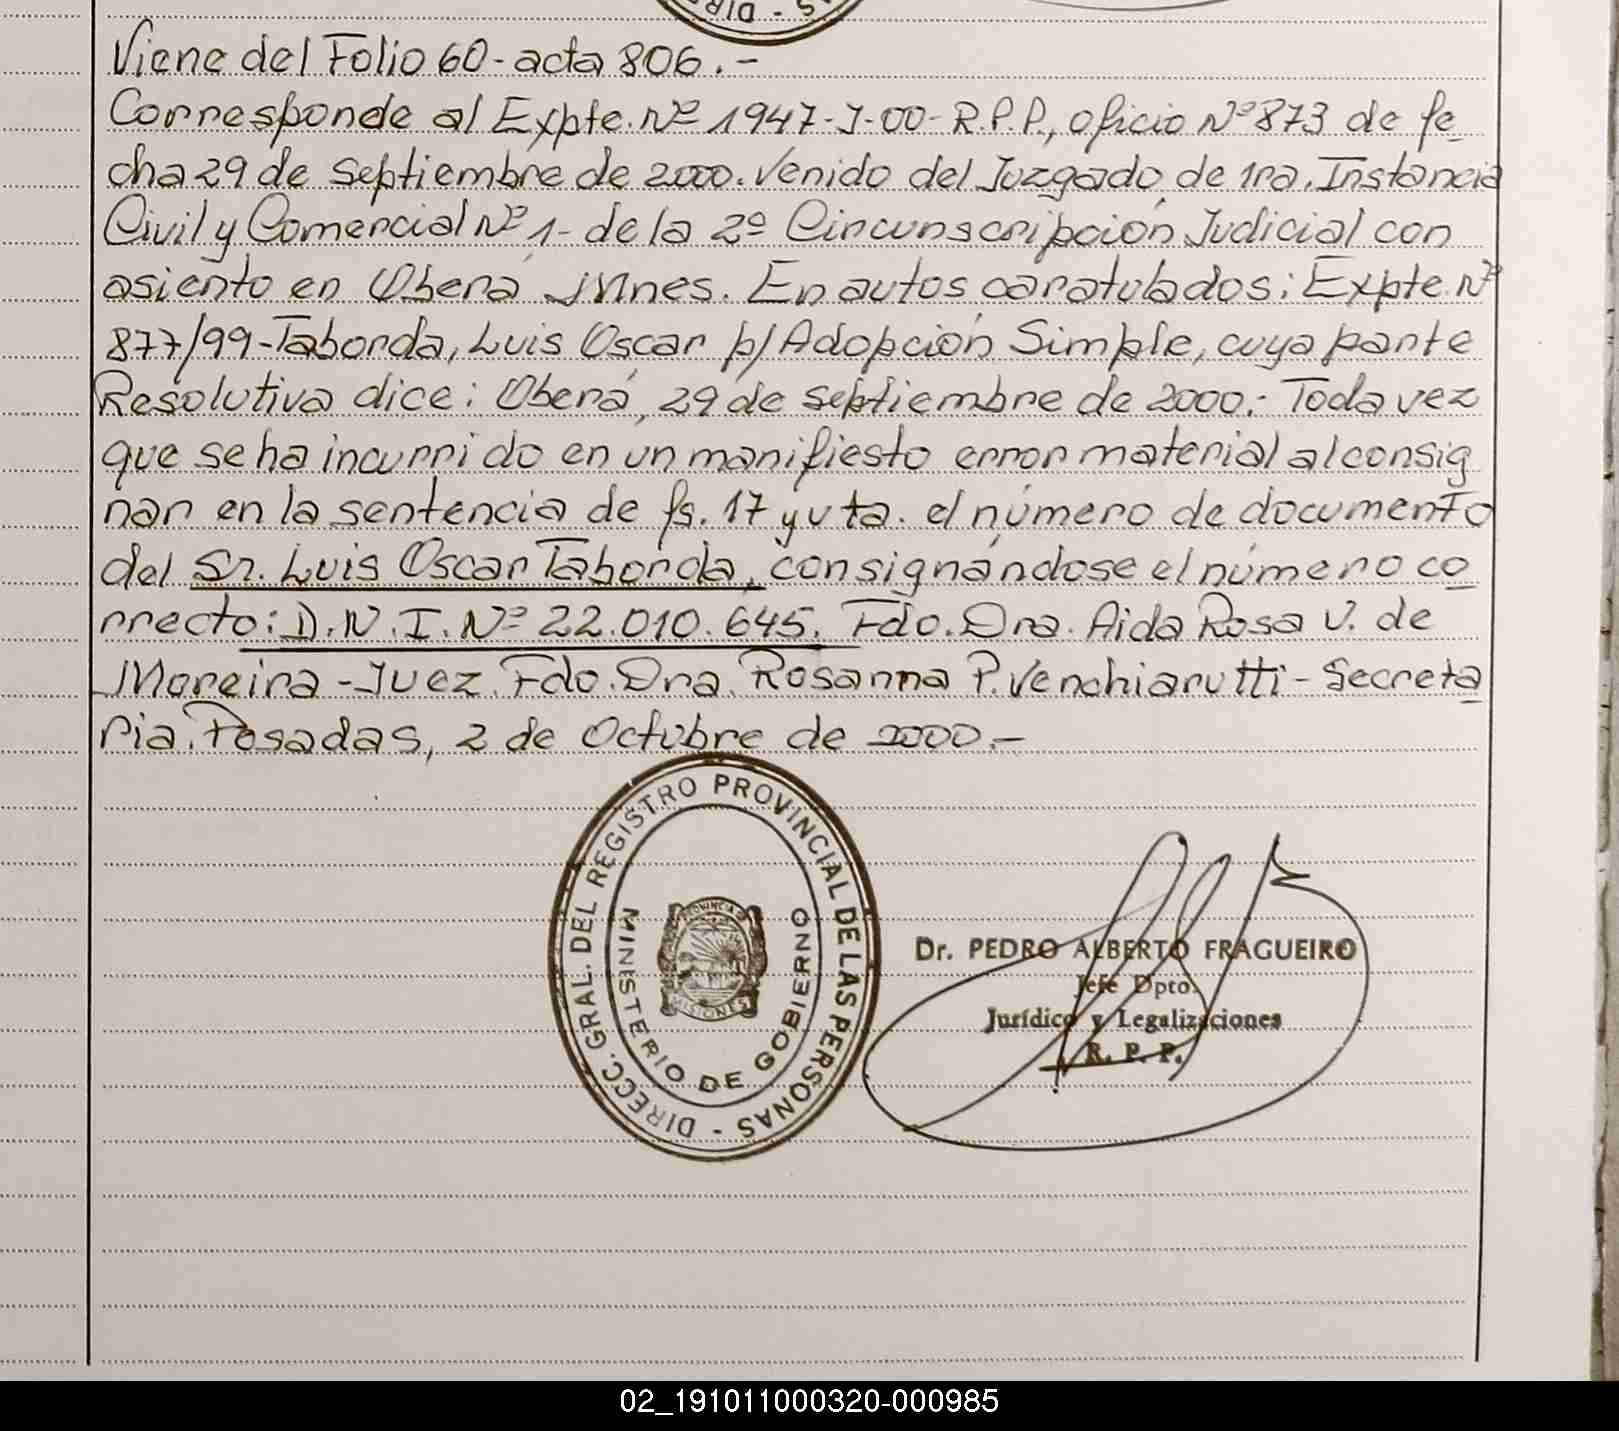 Viene del Folio 60-acta 806.-
Corresponde al Expte. Nº 1947-J-00-R.P.P., oficio Nº 873 de fe
cha 29 de septiembre de 2000. Venido del Juzgado de 1ra. Instancia
Civil y Comercial Nº 1- de la 2º Circunscripción Judicial con
asiento en Oberá, Mnes. En autos caratulados: Expte. Nº
877/99-Taborda, Luis Oscar p/Adopción Simple, cuya parte
Resolutiva dice: Oberá, 29 de septiembre de 2000.- Toda vez
que se ha incurrido en un manifiesto error material al consig
nar en la sentencia de fs. 17 y vta. el número de documento
del Sr. Luis Oscar Taborda, consignándose el número co
rrecto: D.N.I. Nº 22.010.645. Fdo. Dra. Aida Rosa V. de
Moreira-Juez. Fdo. Dra. Rosanna P. Venchiarutti-Secreta
ria. Posadas, 2 de Octubre de 2000.-
DIRECC. GRAL. DEL REGISTRO PROVINCIAL DE LAS PERSONAS -
MINISTERIO DE GOBIERNO
PROVINCIA D
MISIONES
Dr. PEDRO ALBERTO FRAGUEIRO
Jefe Dpto.
Jurídico y Legalizaciones
R. P. P.
02_191011000320-000985